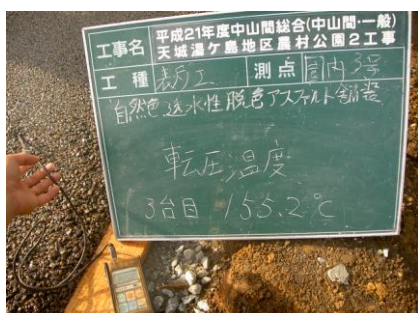 工事名 平成21年度中山間総合(中山間・一般)
天城湯ケ島地区農村公園2工事
工種 表層工 測点 園内3号
自然色透水性脱色アスファルト舗装
転圧温度
3台目 155.2℃